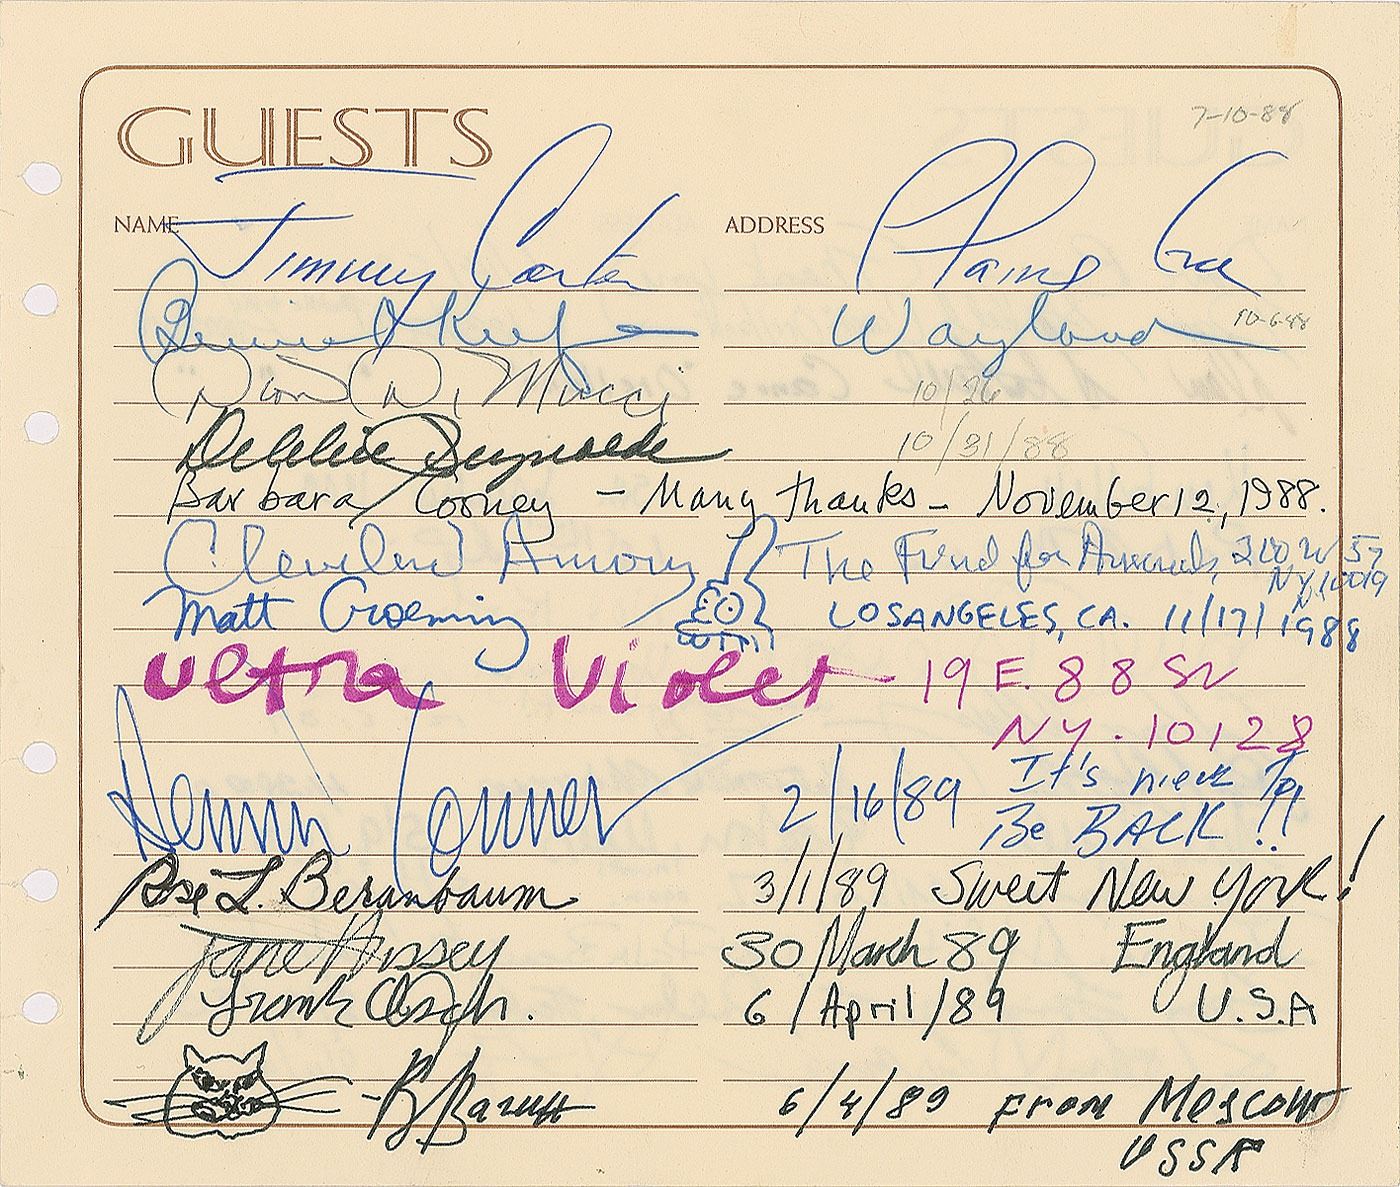 GUESTS
7-10-88
NAME ADDRESS
Jimmy Carter Plains Ga
Wayland 10-6-88
Don D. Mucci 10/26
Debbie Reynolds 10/31/88
Barbara Cooney - Many thanks - November 12, 1988.
Cleveland Amory The Fund for Animals, 200 W 57
NY, NY 10019
Matt Groening LOS ANGELES, CA. 11/17/1988
Ultra Violet 19 E. 88 St
NY. 10128
2/16/89 It's nice To
Be BACK!!
Rose L. Beranbaum 3/1/89 Sweet New York!
Jane Hissey 30 March 89 England
Frank Asch. 6/April/89 U.S.A
6/4/89 FROM Moscow
USSR